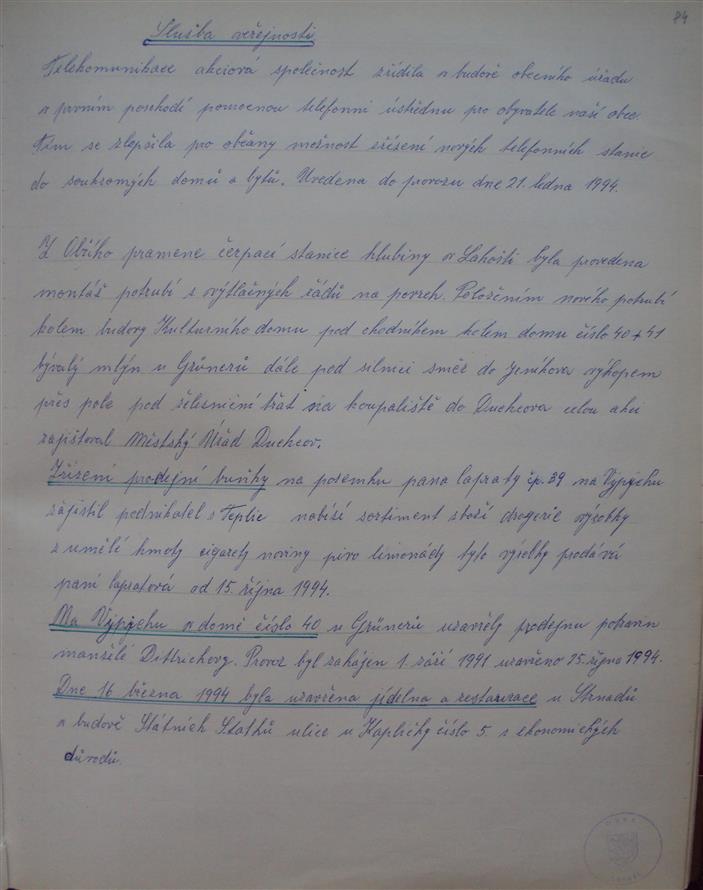 84
Služba veřejnosti
Telekomunikace akciová společnost zřídila v budově obecního úřadu
v prvním poschodí pomocnou telefonní ústřednu pro obyvatele naší obce.
Tím se zlepšila pro občany možnost zřízení nových telefonních stanic
do soukromých domů a bytů. Uvedena do provozu dne 21. ledna 1994.
Z Obřího pramene čerpací stanice hlubiny v Lahošti byla provedena
montáž potrubí s výtlačných řádů na povrch. Položením nového potrubí
kolem budovy Kulturního domu pod chodníkem kolem domu číslo 40+41
bývalý mlýn u Grünerů dále pod silnici směr do Jeníkova výkopem
přes pole pod železniční trať via koupaliště do Duchcova celou akci
zajišťoval Městský Úřad Duchcov.
Zřízení prodejní buňky na pozemku pana Capraty čp. 39 na Výpěchu
zajistil podnikatel s Teplic nabízí sortiment zboží drogerie výrobky
z umělé hmoty cigarety noviny pivo limonády tyto výrobky prodává
paní Capratová od 15. října 1994.
Na Výpěchu v domě číslo 40 u Grünerů uzavřely prodejnu potravin
manželé Dittrichovy. Provoz byl zahájen 1. září 1991 uzavřeno 25. října 1994.
Dne 16 března 1994 byla uzavřena jídelna a restaurace u Strnadů
v budově Státních Statků ulice u Kapličky číslo 5. s ekonomických
důvodů.